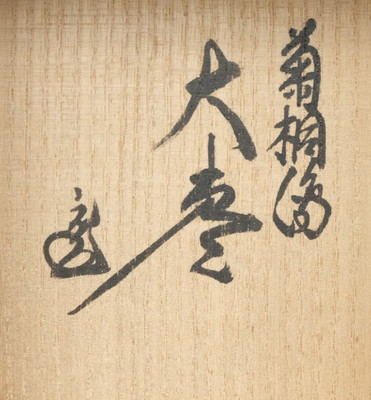 菊桐蒔
大棗